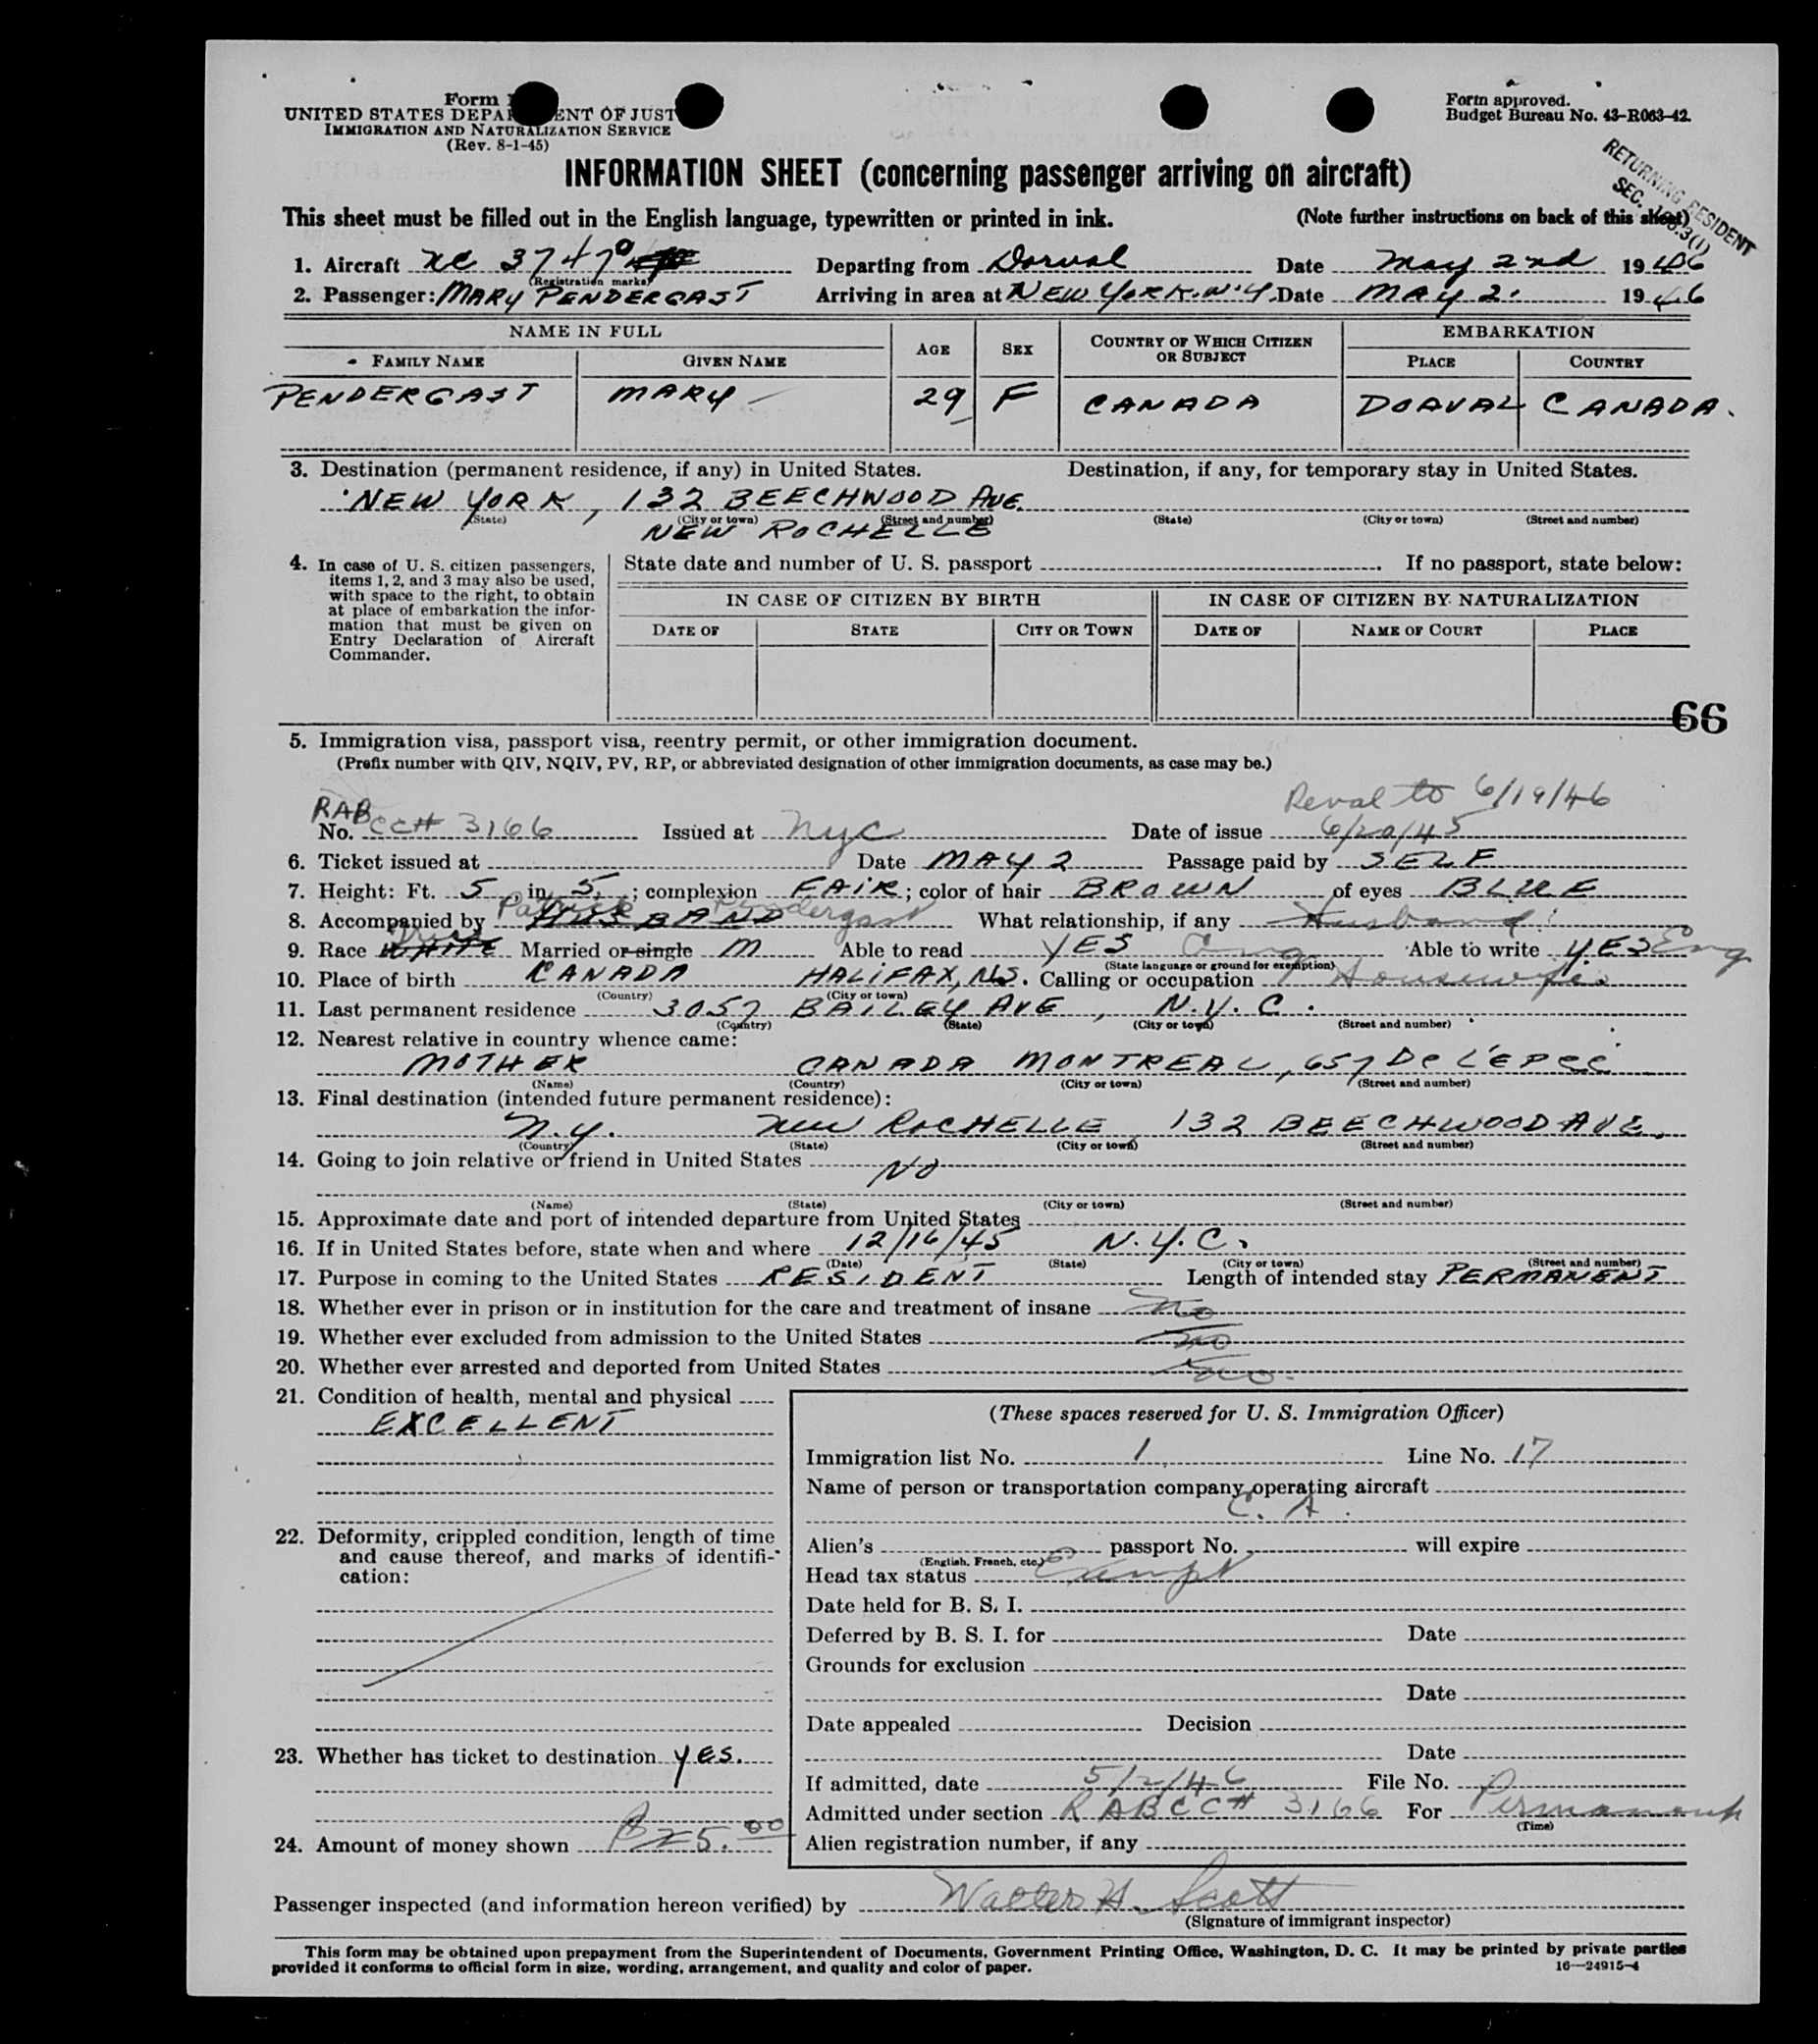 Form
UNITED STATES DEPA ENT OF JUST
IMMIGRATION AND NATURALIZATION SERVICE
(Rev. 8-1-45)
Form approved.
Budget Bureau No. 43-R063-42.
RETURNING RESIDENT
SEC.
INFORMATION SHEET (concerning passenger arriving on aircraft)
This sheet must be filled out in the English language, typewritten or printed in ink. (Note further instructions on back of this sheet)
1. Aircraft NC 37470 Departing from Dorval Date May 2nd 1946
(Registration marks)
2. Passenger: MARY PENDERGAST Arriving in area at NEW YORK. N.Y. Date MAY 2. 1946
NAME IN FULL AGE SEX COUNTRY OF WHICH CITIZEN OR SUBJECT EMBARKATION
FAMILY NAME GIVEN NAME PLACE COUNTRY
PENDERGAST MARY 29 F CANADA DORVAL CANADA.
3. Destination (permanent residence, if any) in United States. Destination, if any, for temporary stay in United States.
NEW YORK, 132 BEECHWOOD AVE.
(State) (City or town) (Street and number) (State) (City or town) (Street and number)
NEW ROCHELLE
4. In case of U. S. citizen passengers, items 1, 2, and 3 may also be used, with space to the right, to obtain at place of embarkation the information that must be given on Entry Declaration of Aircraft Commander.
State date and number of U. S. passport . If no passport, state below:
IN CASE OF CITIZEN BY BIRTH IN CASE OF CITIZEN BY NATURALIZATION
DATE OF STATE CITY OR TOWN DATE OF NAME OF COURT PLACE
66
5. Immigration visa, passport visa, reentry permit, or other immigration document.
(Prefix number with QIV, NQIV, PV, RP, or abbreviated designation of other immigration documents, as case may be.)
Reval to 6/19/46
RAB
No. CC# 3166 Issued at NYC Date of issue 6/20/45
6. Ticket issued at Date MAY 2 Passage paid by SELF
7. Height: Ft. 5, in. 5. ; complexion FAIR ; color of hair BROWN of eyes BLUE
8. Accompanied by Patrick Pendergast HUSBAND What relationship, if any Husband
9. Race WHITE Married or single M Able to read YES Eng Able to write YES Eng
(State language or ground for exemption)
10. Place of birth CANADA HALIFAX, N.S. Calling or occupation Housewife
(Country) (City or town)
11. Last permanent residence 3057 BAILEY AVE, N.Y.C.
(Country) (State) (City or town) (Street and number)
12. Nearest relative in country whence came:
MOTHER CANADA MONTREAL, 657 De L'EPEE
(Name) (Country) (City or town) (Street and number)
13. Final destination (intended future permanent residence):
N.Y. New ROCHELLE 132 BEECHWOOD AVE.
(Country) (State) (City or town) (Street and number)
14. Going to join relative or friend in United States NO
(Name) (State) (City or town) (Street and number)
15. Approximate date and port of intended departure from United States
16. If in United States before, state when and where 12/16/45 N.Y.C.
(Date) (State) (City or town) (Street and number)
17. Purpose in coming to the United States RESIDENT Length of intended stay PERMANENT
18. Whether ever in prison or in institution for the care and treatment of insane no
19. Whether ever excluded from admission to the United States no
20. Whether ever arrested and deported from United States no.
21. Condition of health, mental and physical
EXCELLENT
22. Deformity, crippled condition, length of time and cause thereof, and marks of identification:
23. Whether has ticket to destination YES.
24. Amount of money shown $25.00
(These spaces reserved for U. S. Immigration Officer)
Immigration list No. 1 Line No. 17
Name of person or transportation company operating aircraft
C. A.
Alien's passport No. will expire
(English, French, etc.)
Head tax status Exempt
Date held for B. S. I.
Deferred by B. S. I. for Date
Grounds for exclusion
Date
Date appealed Decision
Date
If admitted, date 5/2/46 File No.
Admitted under section RABCC# 3166 For Permanent
(Time)
Alien registration number, if any
Passenger inspected (and information hereon verified) by Walter H. Scott
(Signature of immigrant inspector)
This form may be obtained upon prepayment from the Superintendent of Documents, Government Printing Office, Washington, D. C. It may be printed by private parties
provided it conforms to official form in size, wording, arrangement, and quality and color of paper. 16—24915-4